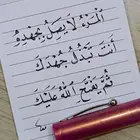 المَرْءُ لَا يَصِلُ بِجُهْدِهِ
أَنتَ تَبْذُلُ جُهْدَكَ
ثُمَّ يَفْتَحُ اللهُ عَلَيْكَ